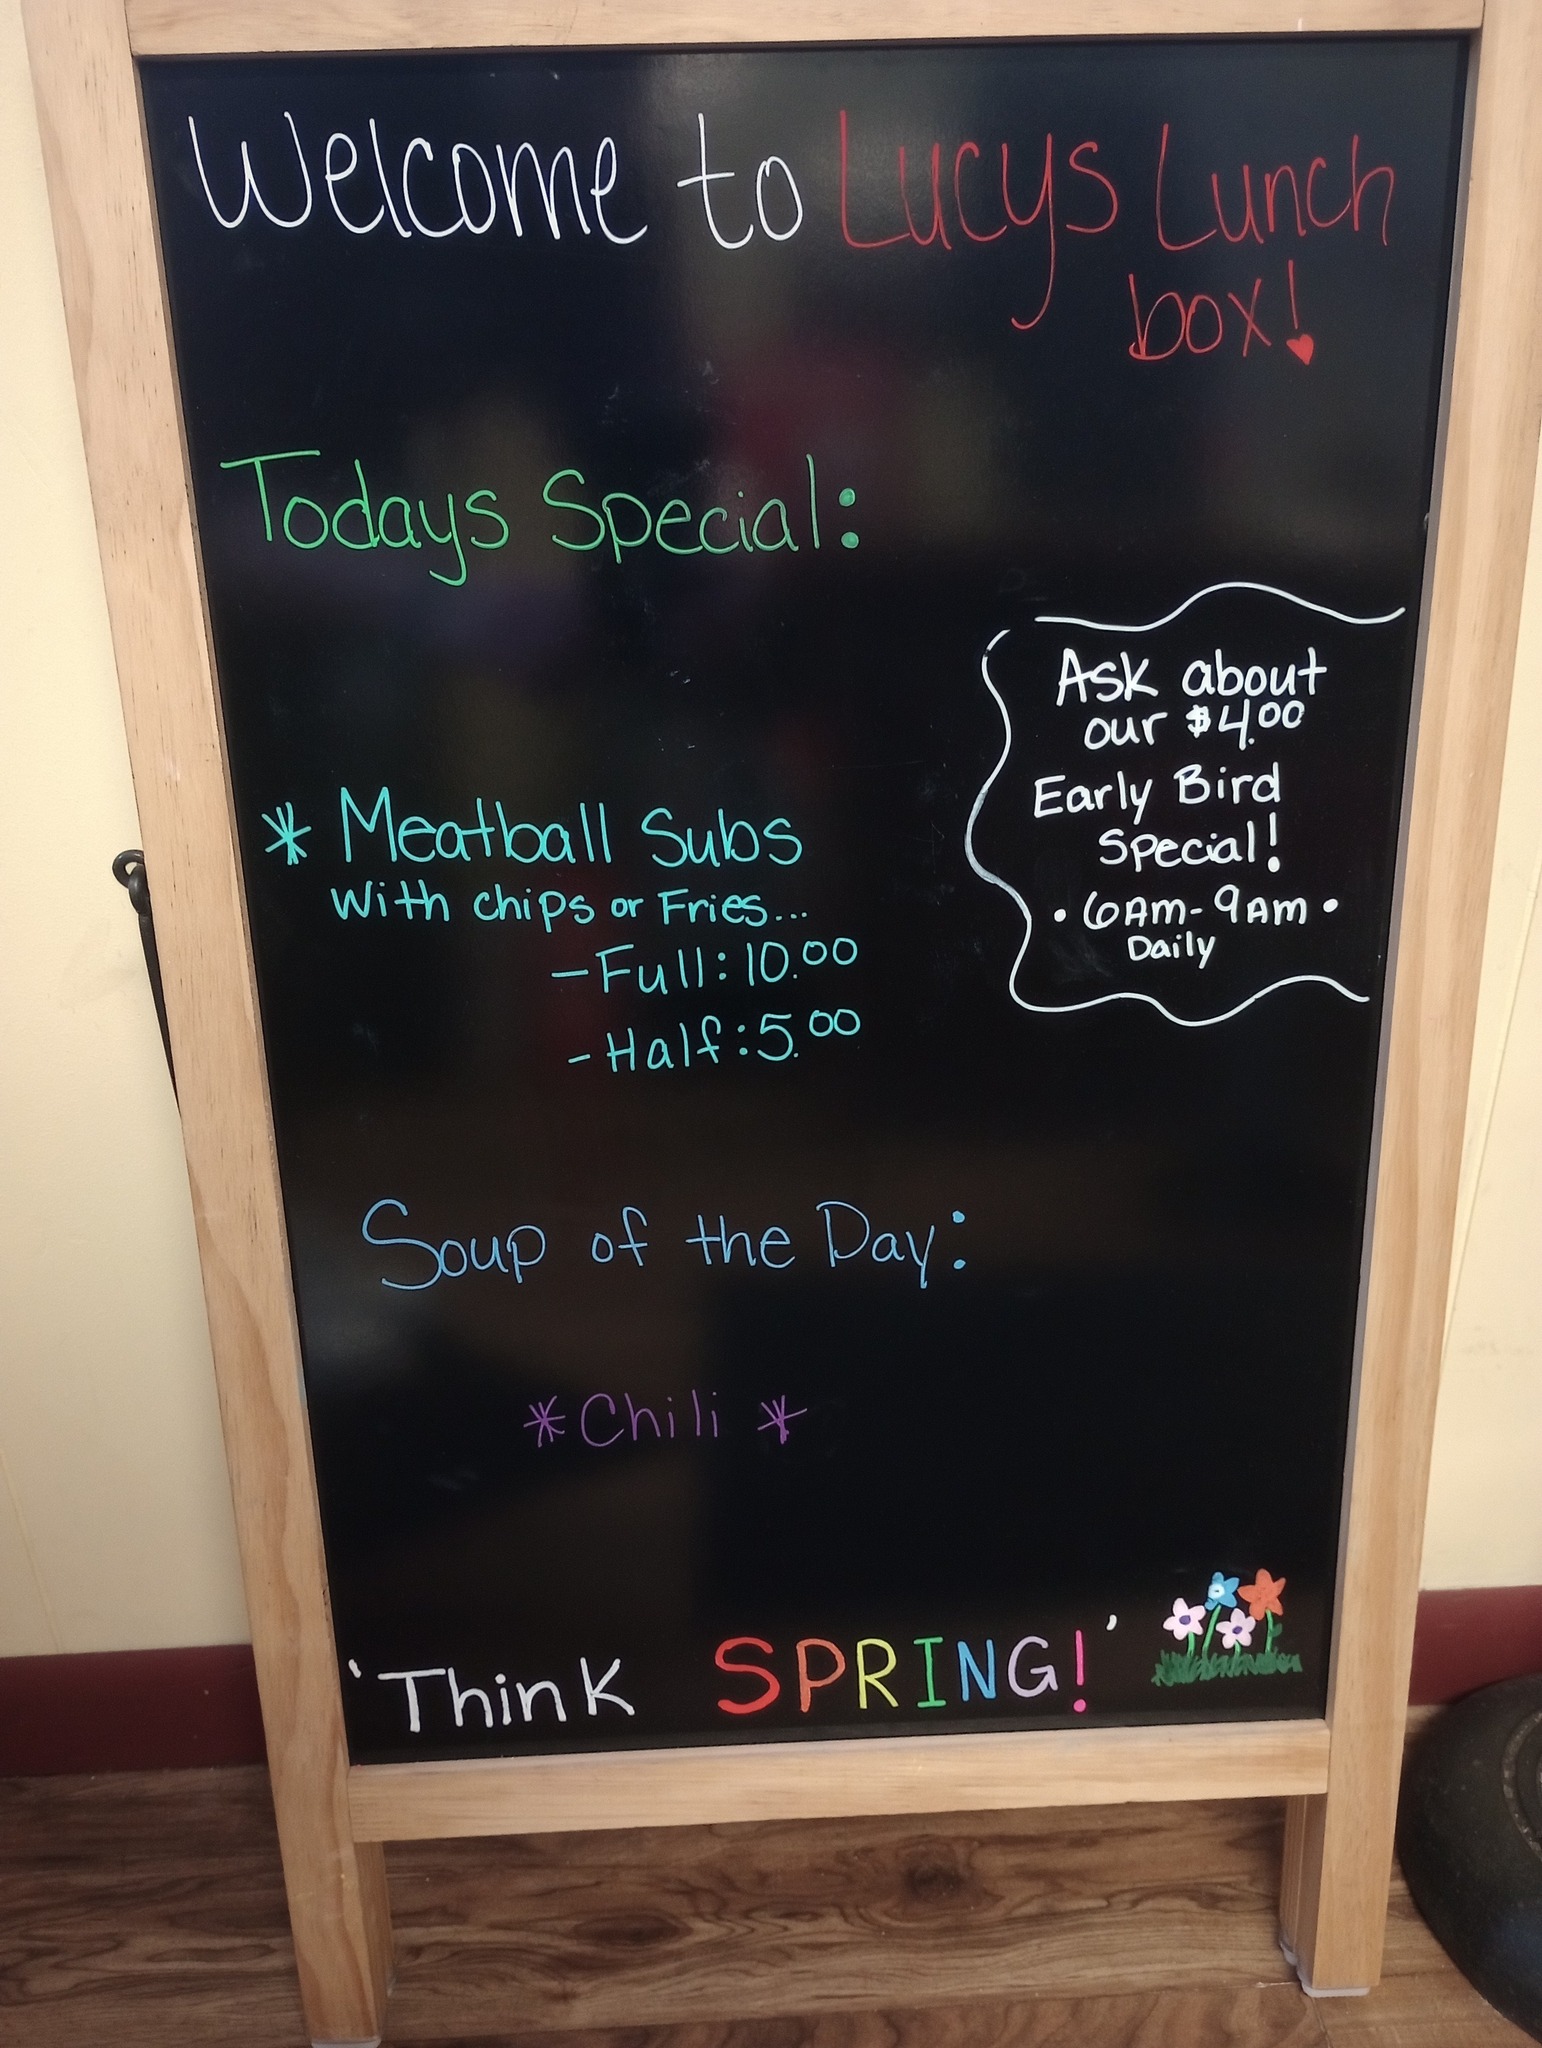 Welcome to Lucys Lunch
box!
Todays Special:
* Meatball Subs
with chips or Fries...
- Full: 10.00
- Half: 5.00
Ask about
our $4.00
Early Bird
Special!
• 6AM - 9AM •
Daily
Soup of the Day:
* Chili *
'Think SPRING!'